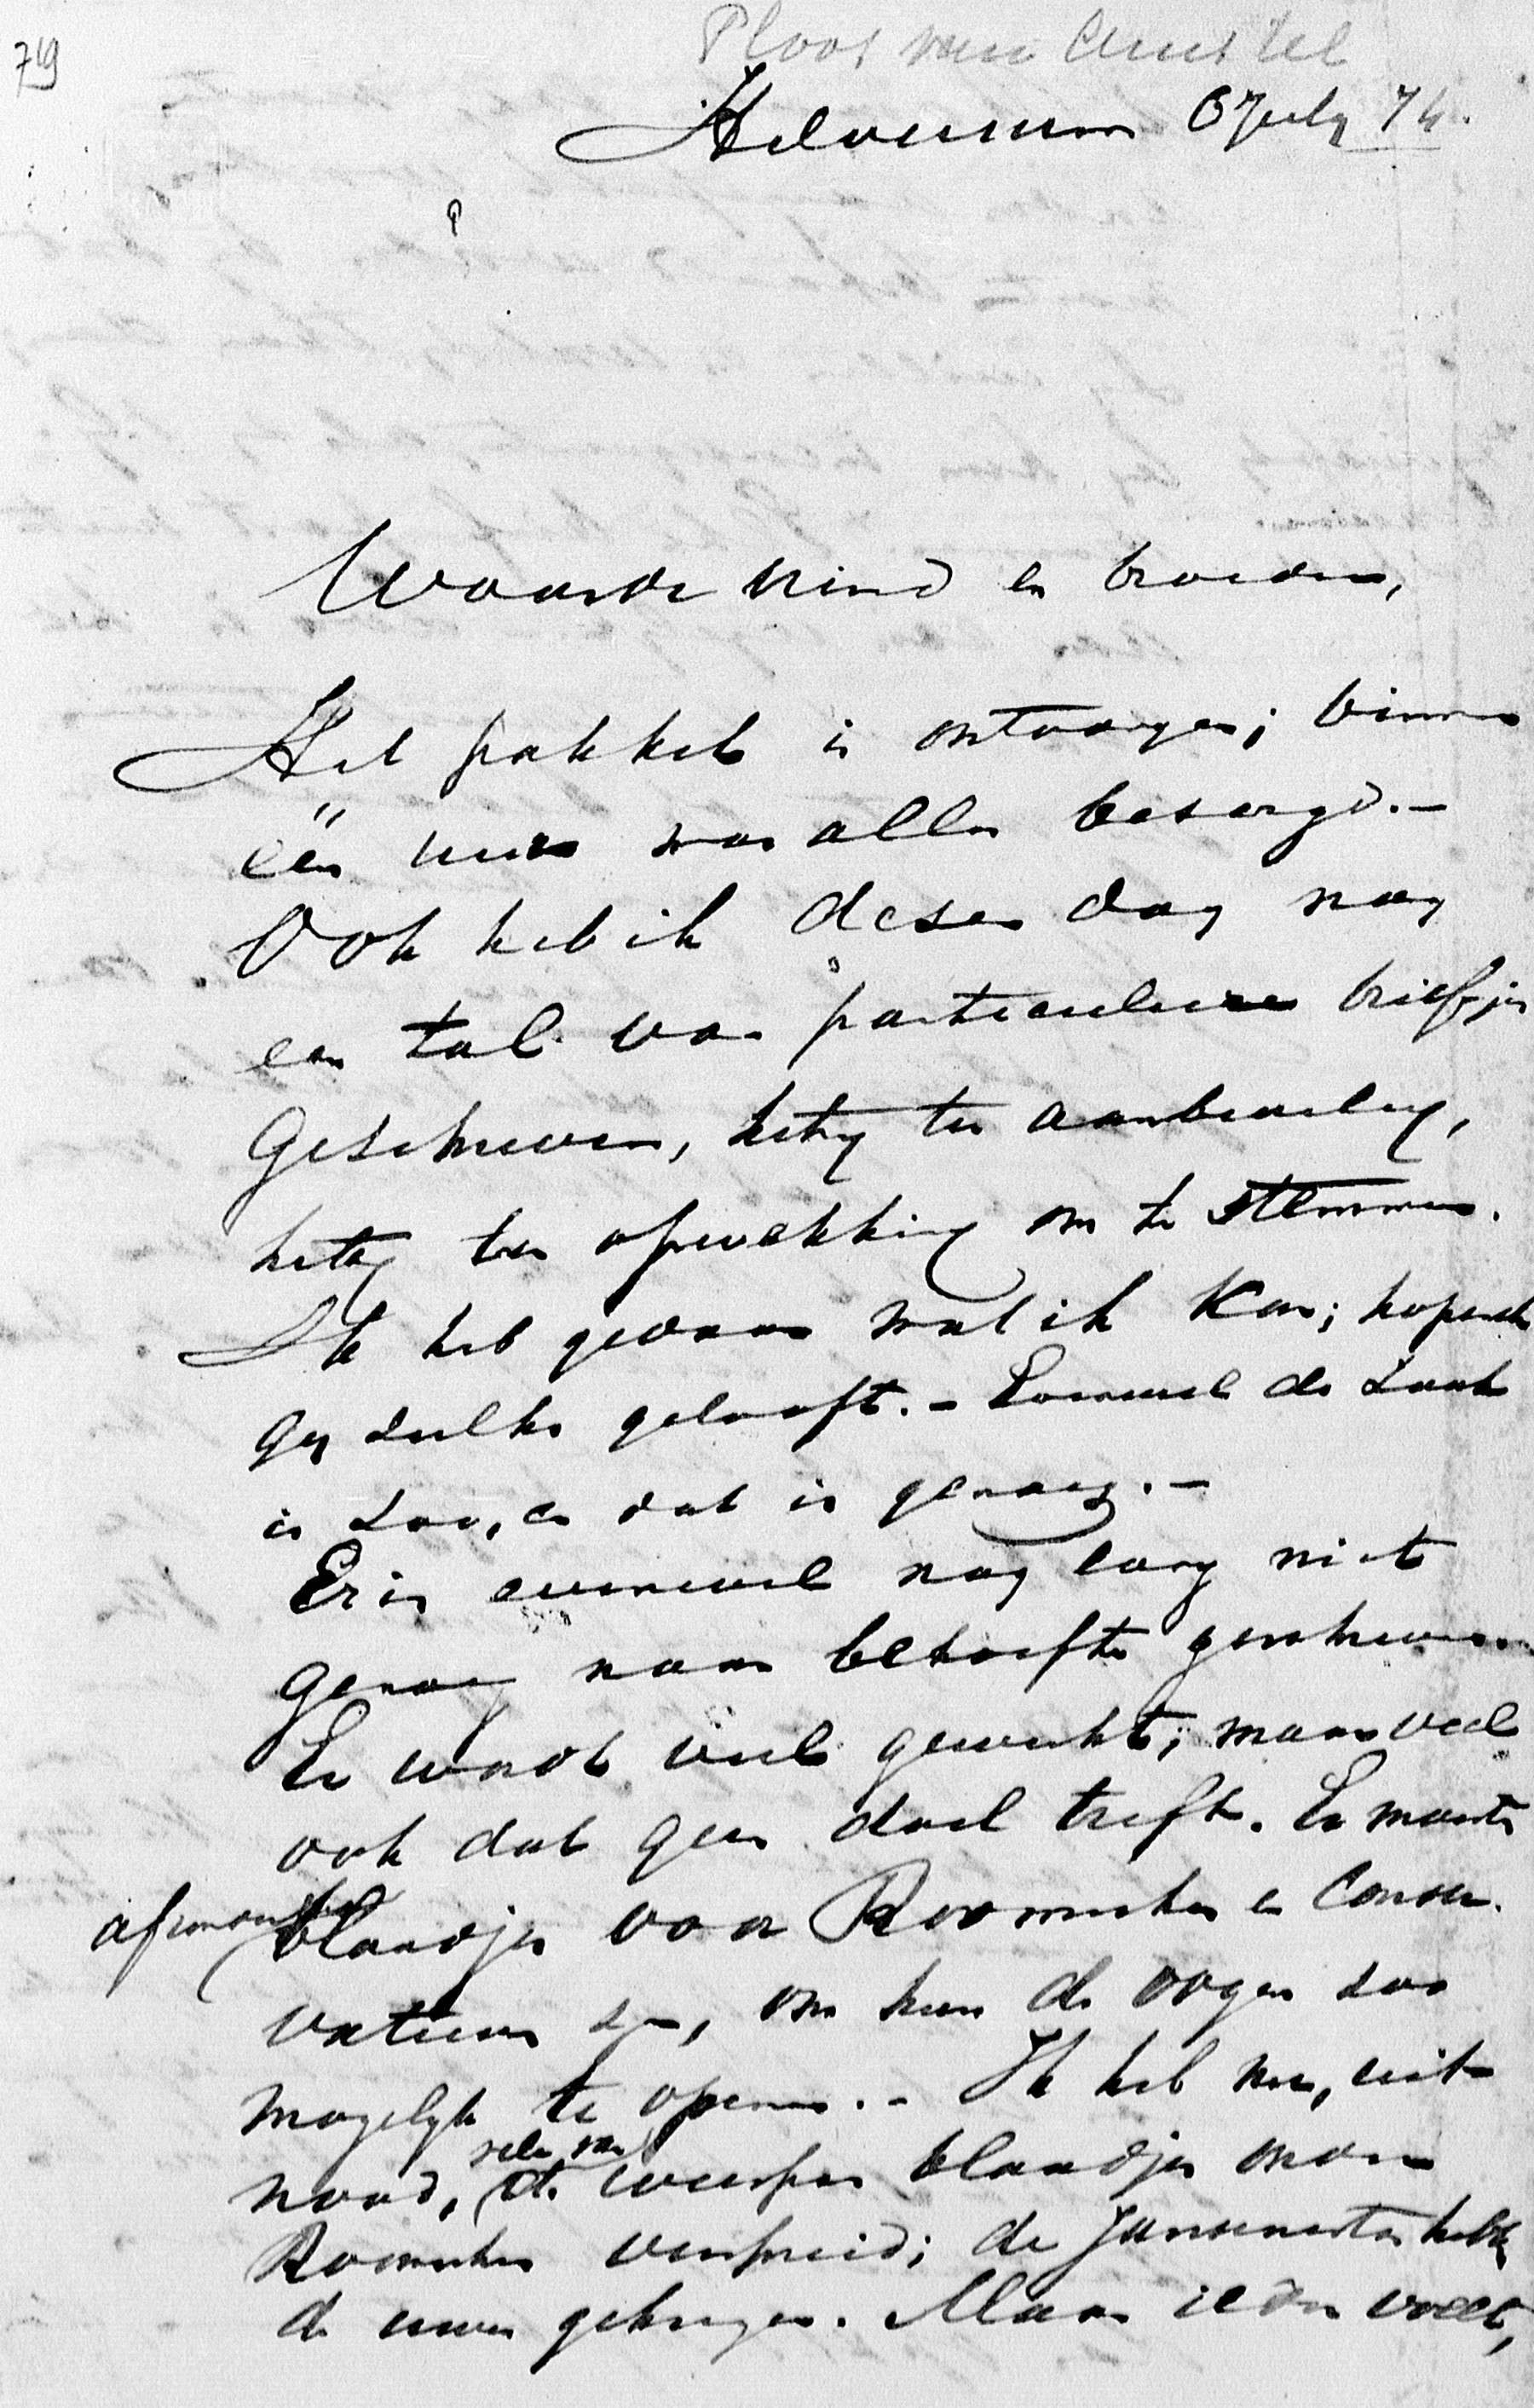 719
Ploos van Amstel
Hilversum 6 July 74.
Waarde vriend en broeder,
Het pakket is ontvangen; binnen
één uur was alles bezorgd. –
Ook heb ik dezen dag nog
een tal van particuliere briefjes
geschreven, hetzij ter aanbeveling,
hetzij ter opwekking om te stemmen.
Ik heb gedaan wat ik kon; hopende
gij zulks gelooft. – Evenwel de zaak
is zoo, en dat is genoeg. –
Er is evenwel nog lang niet
genoeg naar behoefte geschreven.
Er wordt veel gewerkt; maar veel
ook dat geen doel treft. Er moesten
blaadjes voor Roomschen en Conser-
vatieven zijn, om hun de oogen zoo
mogelijk te openen. – Ik heb nu, uit
nood, de Weesper blaadjes onder
Roomschen verspreid; de Jansenisten hebben
de uwen gekregen. Maar ieder voelt,